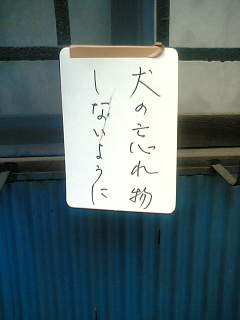 犬の忘れ物
しないように